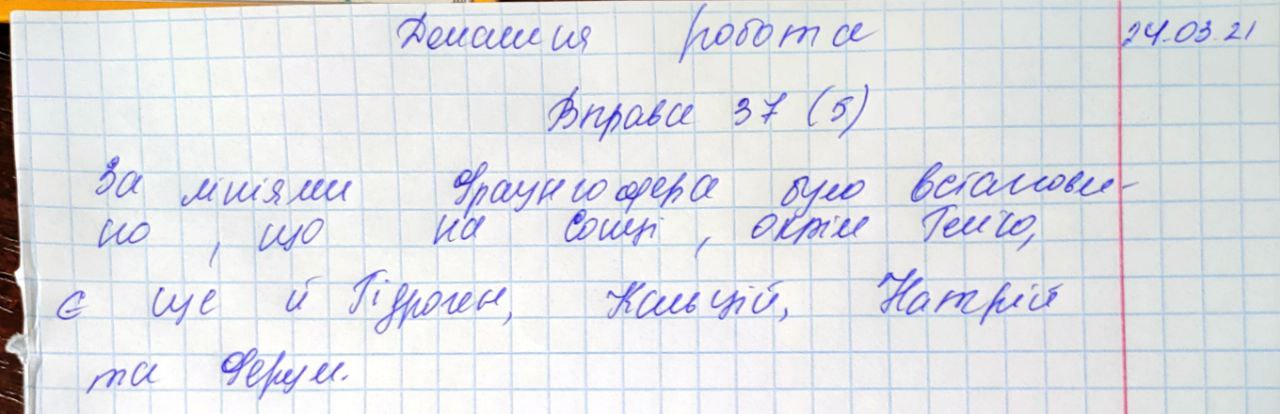 Домашня робота 24.03.21
Вправа 37 (5)
За лініями Фраунгофера було встановле-
но, що на Сонці, окрім Гелію,
є ще й Гідроген, Кальцій, Натрій
та Ферум.